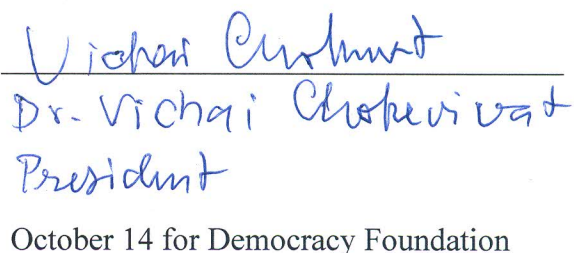 Vichai Chokevivat
Dr. Vichai Chokevivat
President
October 14 for Democracy Foundation